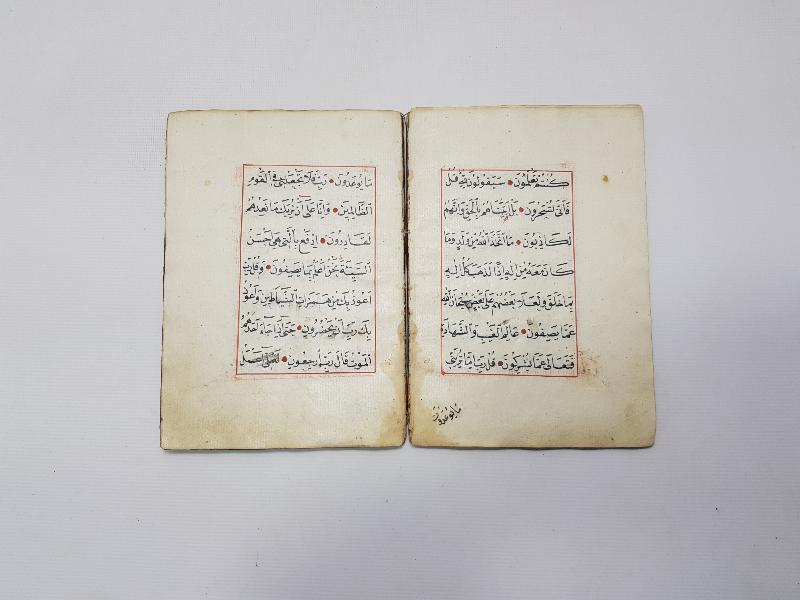 كُنْتُمْ تَعْلَمُونَ • سَيَقُولُونَ لِلَّهِ قُلْ
فَأَنَّى تُسْحَرُونَ • بَلْ أَتَيْنَاهُمْ بِالْحَقِّ وَإِنَّهُمْ
لَكَاذِبُونَ • مَا اتَّخَذَ اللَّهُ مِنْ وَلَدٍ وَمَا
كَانَ مَعَهُ مِنْ إِلَهٍ إِذًا لَذَهَبَ كُلُّ إِلَهٍ
بِمَا خَلَقَ وَلَعَلَا بَعْضُهُمْ عَلَى بَعْضٍ سُبْحَانَ اللَّهِ
عَمَّا يَصِفُونَ • عَالِمِ الْغَيْبِ وَالشَّهَادَةِ
فَتَعَالَى عَمَّا يُشْرِكُونَ • قُلْ رَبِّ إِمَّا تُرِيَنِّي
مَا يُوعَدُونَ
مَا يُوعَدُونَ • رَبِّ فَلَا تَجْعَلْنِي فِي الْقَوْمِ
الظَّالِمِينَ • وَإِنَّا عَلَى أَنْ نُرِيَكَ مَا نَعِدُهُمْ
لَقَادِرُونَ • ادْفَعْ بِالَّتِي هِيَ أَحْسَنُ
السَّيِّئَةَ نَحْنُ أَعْلَمُ بِمَا يَصِفُونَ • وَقُلْ رَبِّ
أَعُوذُ بِكَ مِنْ هَمَزَاتِ الشَّيَاطِينِ وَأَعُوذُ
بِكَ رَبِّ أَنْ يَحْضُرُونِ • حَتَّى إِذَا جَاءَ أَحَدَهُمُ
الْمَوْتُ قَالَ رَبِّ ارْجِعُونِ • لَعَلِّي أَعْمَلُ